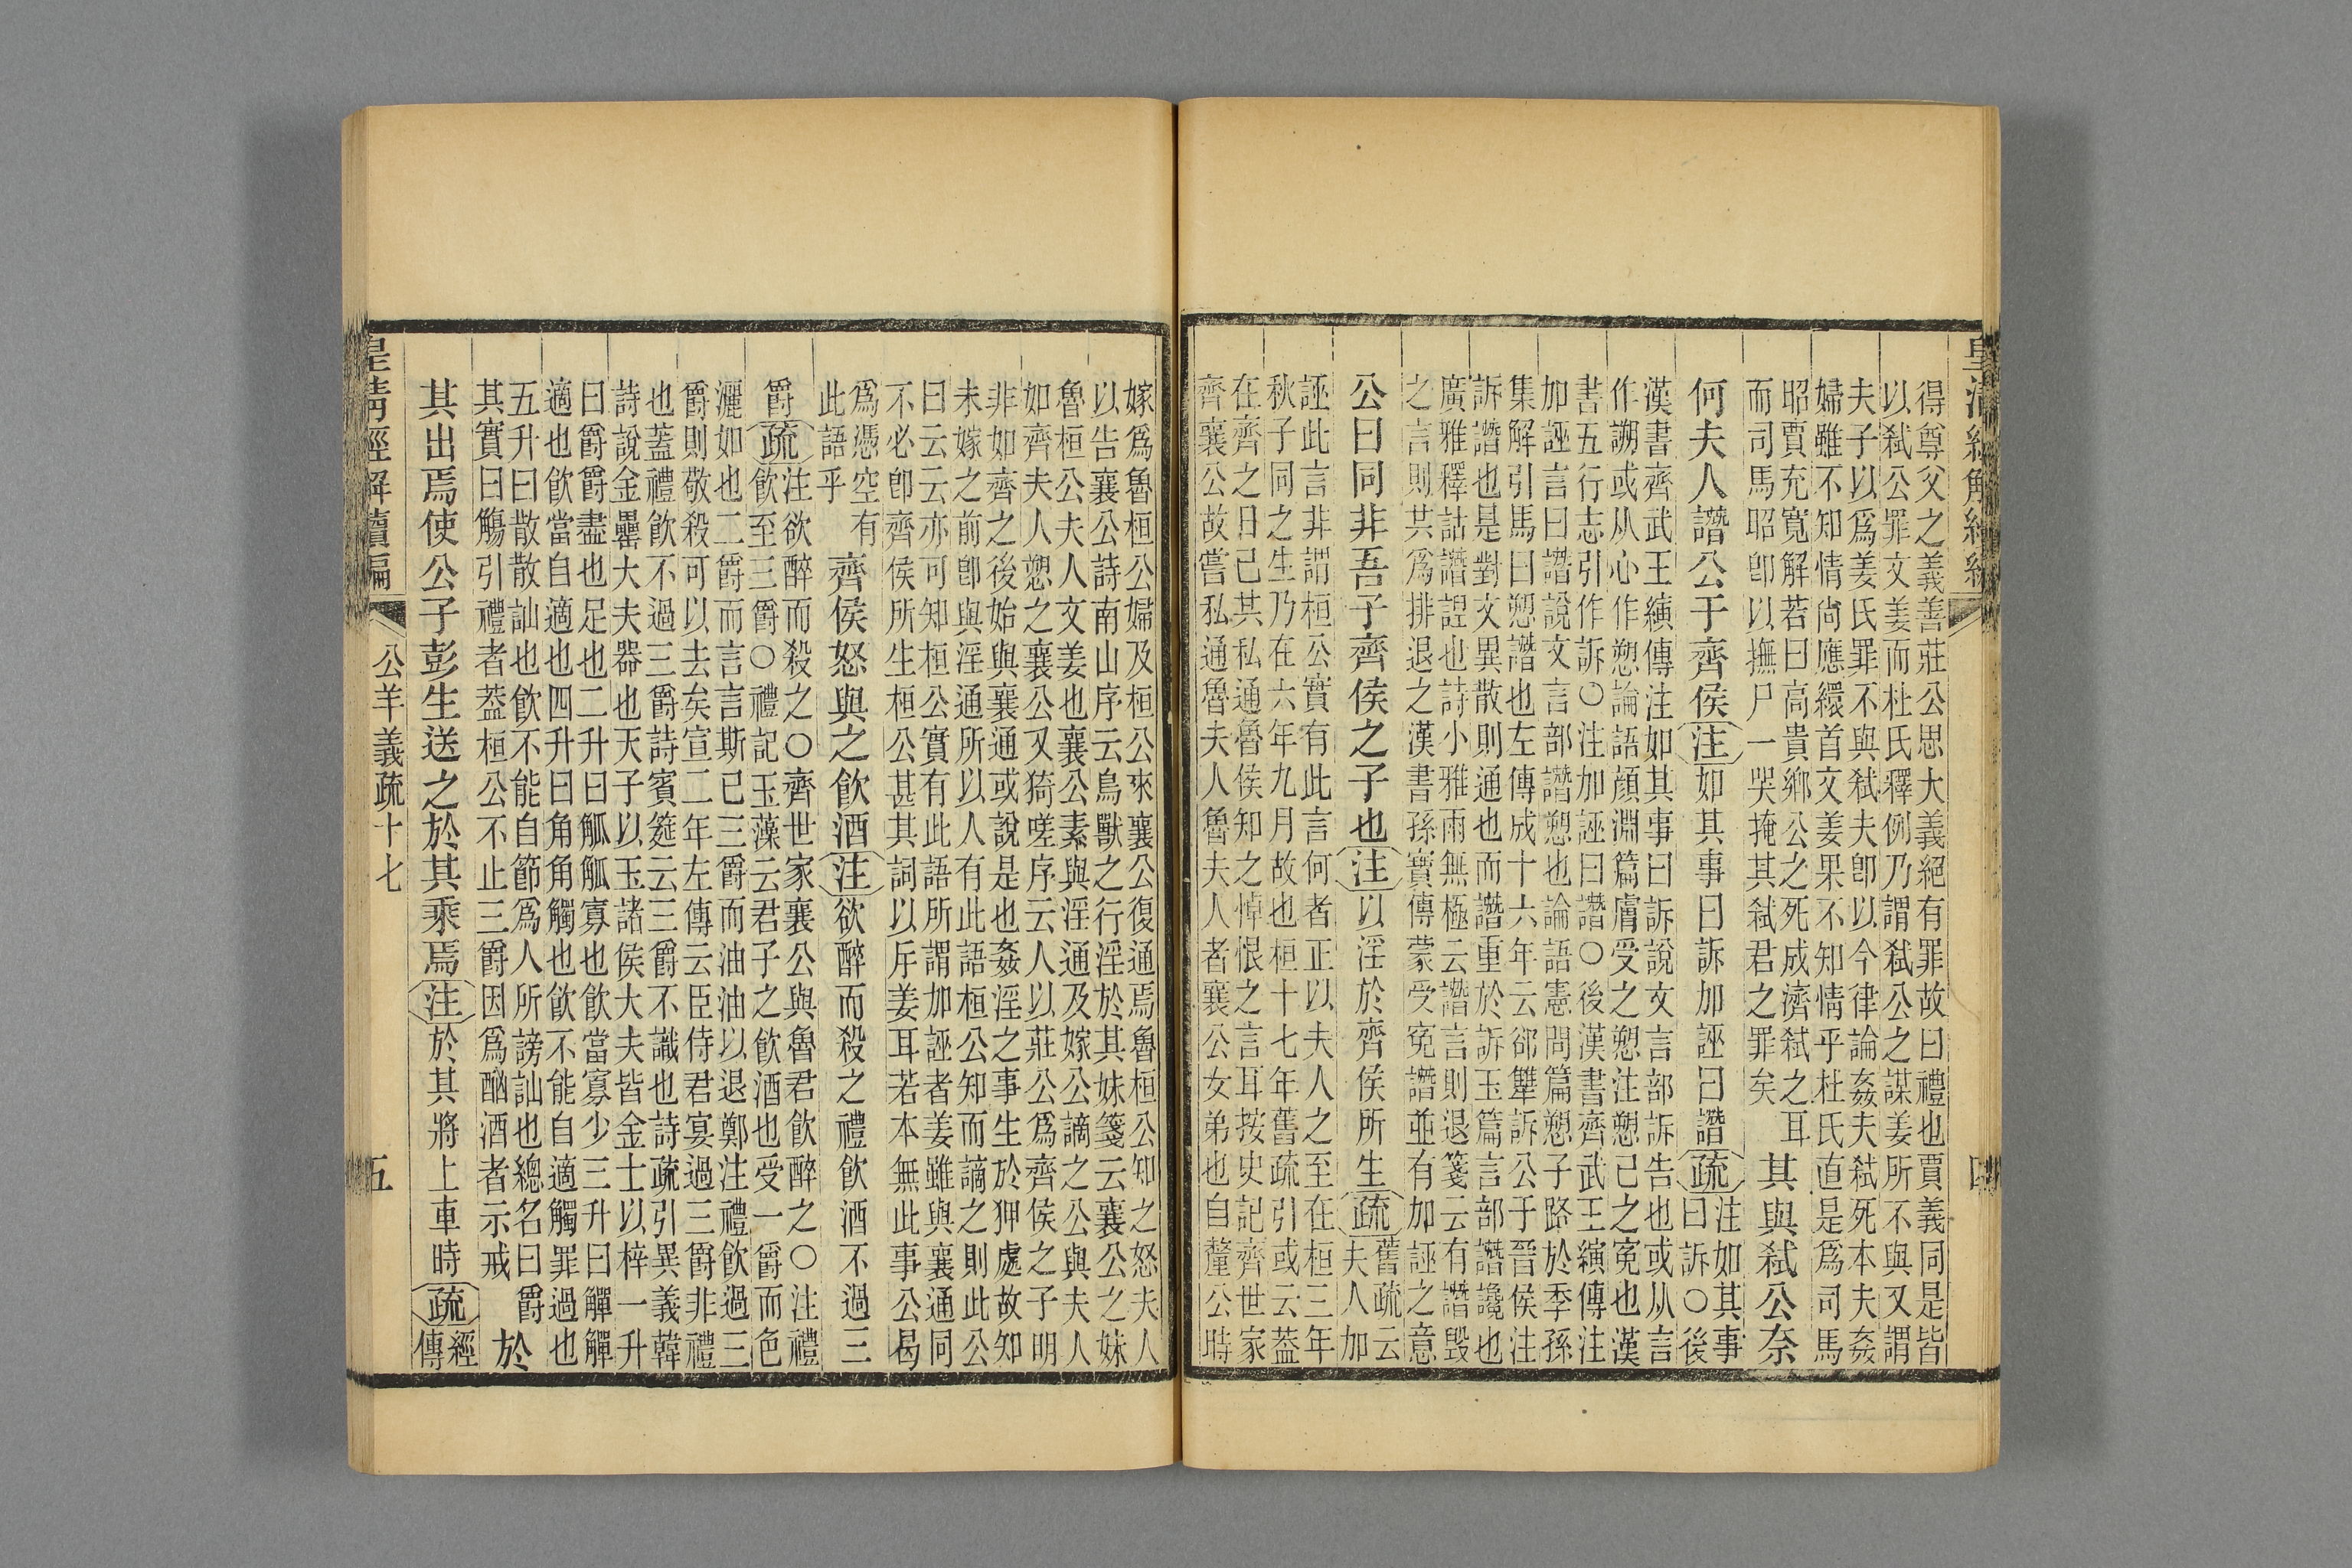 皇清經解續編
得尊父之義善莊公思大義絕有罪故曰禮也賈義同是皆
以弑公罪文姜而杜氏釋例乃謂弑公之謀姜所不與又謂
夫子以爲姜氏罪不與弑夫卽以今律論姦夫弑死本夫姦
婦雖不知情尙應繯首文姜果不知情乎杜氏直是爲司馬
昭賈充寬解若曰高貴鄉公之死成濟弑之耳
而司馬昭卽以撫尸一哭掩其弑君之罪矣
其與弑公奈
何夫人譖公于齊侯注如其事曰訴加誣曰譖疏注如其事
曰訴○後
漢書齊武王縯傳注如其事曰訴說文言部訴告也或从言
作謝或从心作愬論語顏淵篇膚受之愬注愬己之冤也漢
書五行志引作訴○注加誣曰譖○後漢書齊武王縯傳注
加誣言曰譖說文言部譖愬也論語憲問篇愬子路於季孫
集解引馬曰愬譖也左傳成十六年云郤犫訴公于晉侯注
訴譖也是對文異散則通也而譖重於訴玉篇言部譖讒也
廣雅釋詁譖諻也詩小雅雨無極云譖言則退箋云有譖毀
之言則共爲排退之漢書孫寶傳蒙受冤譖並有加誣之意
公曰同非吾子齊侯之子也注以淫於齊侯所生疏舊疏云
夫人加
誣此言非謂桓公實有此言何者正以夫人之至在桓三年
秋子同之生乃在六年九月故也桓十七年舊疏引或云葢
在齊之日已其私通魯侯知之悼恨之言耳按史記齊世家
齊襄公故嘗私通魯夫人魯夫人者襄公女弟也自釐公時
嫁爲魯桓公婦及桓公來襄公復通焉魯桓公知之怒夫人
以告襄公詩南山序云鳥獸之行淫於其妹箋云襄公之妹
魯桓公夫人文姜也襄公素與淫通及嫁公謫之公與夫人
如齊夫人愬之襄公又猗嗟序云人以莊公爲齊侯之子明
非如齊之後始與襄通或說是也姦淫之事生於狎處故知
未嫁之前卽與淫通所以人有此語桓公知而謫之則此公
曰云云亦可知桓公實有此語所謂加誣者姜雖與襄通同
不必卽齊侯所生桓公甚其詞以斥姜耳若本無此事公曷
爲憑空有
此語乎
齊侯怒與之飮酒注欲醉而殺之禮飮酒不過三
爵疏注欲醉而殺之○齊世家襄公與魯君飮醉之○注禮
飮至三爵○禮記玉藻云君子之飮酒也受一爵而色
灑如也二爵而言言斯已三爵而油油以退鄭注禮飮過三
爵則敬殺可以去矣宣二年左傳云臣侍君宴過三爵非禮
也葢禮飮不過三爵詩賓筵云三爵不識也詩疏引異義韓
詩說金罍大夫器也天子以玉諸侯大夫皆金士以梓一升
曰爵爵盡也足也二升曰觚觚寡也飮當寡少三升曰觶觶
適也飮當自適也四升曰角角觸也飮不能自適觸罪過也
五升曰散散訕也飮不能自節爲人所謗訕也總名曰爵
其實曰觴引禮者葢桓公不止三爵因爲酗酒者示戒
於
其出焉使公子彭生送之於其乘焉注於其將上車時疏經
傳
皇淸經解續編
公羊義疏十七
五